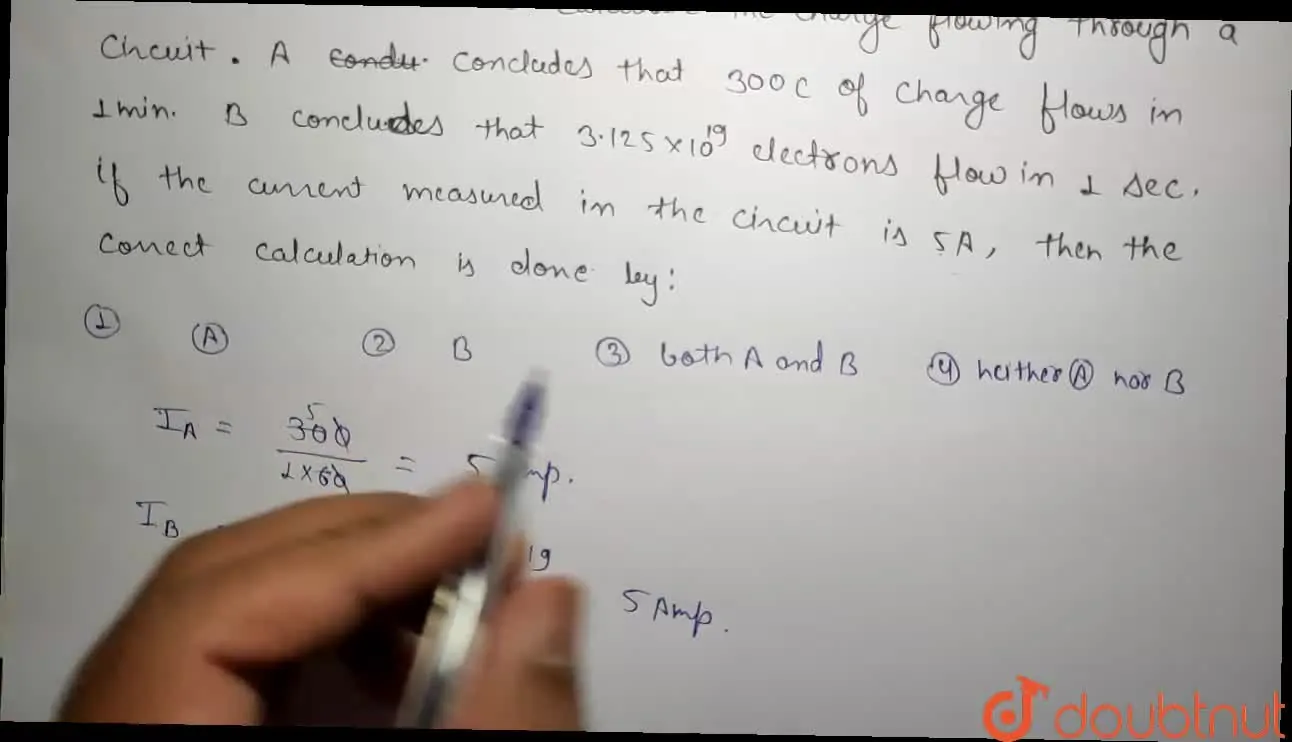 the charge flowing through a
Circuit. A condu. concludes that 300C of charge flows in
1min. B concludes that 3.125×10¹⁹ electrons flow in 1 sec.
if the current measured in the circuit is 5A, then the
correct calculation is done by:
① Ⓐ ② B ③ both A and B ④ neither Ⓐ nor B
5
I_A = 300 / 1×60 = 5 mp.
I_B
19
5 Amp.
doubtnut